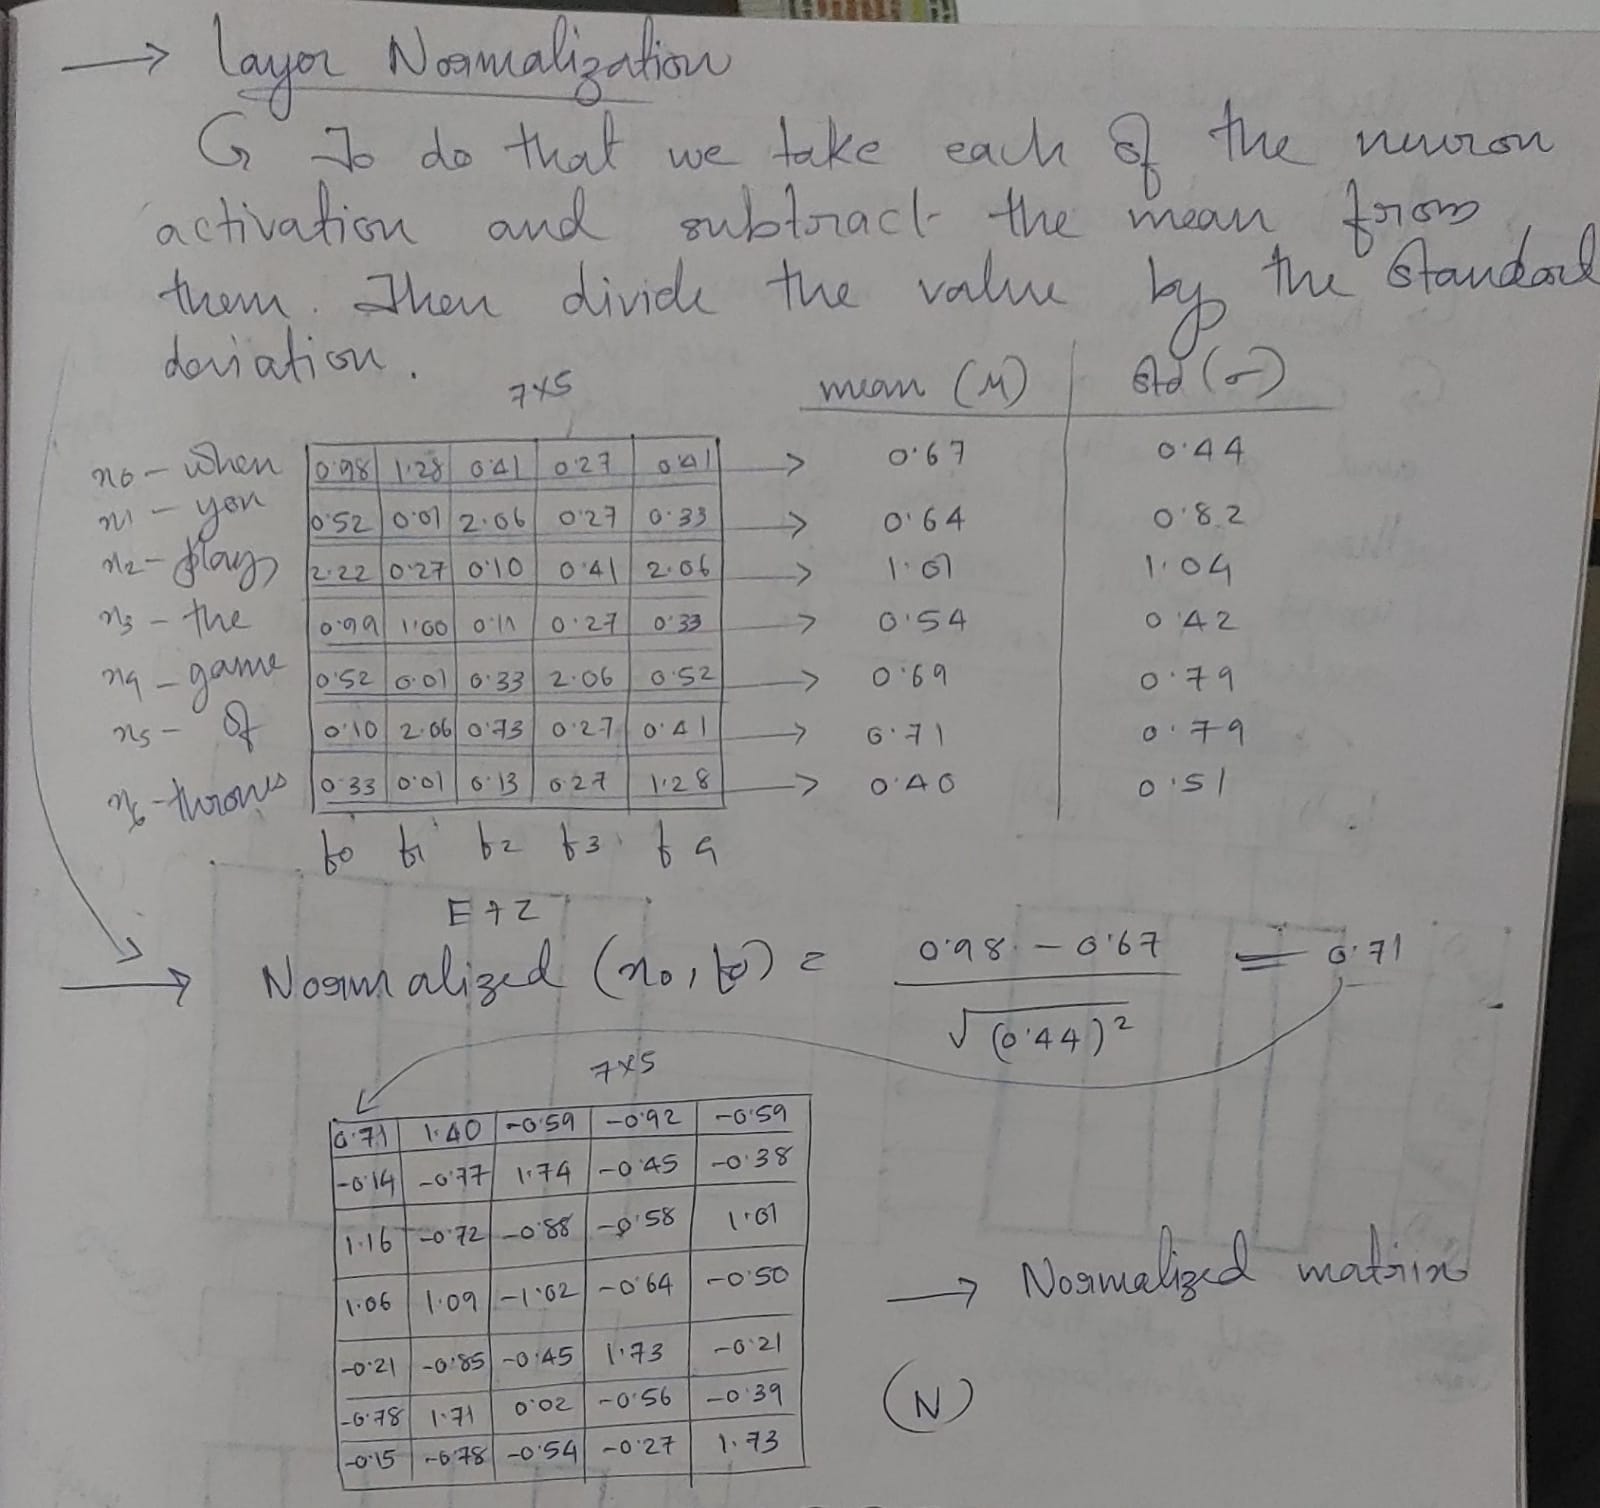 → Layer Normalization
↳ To do that we take each of the neuron
activation and subtract the mean from
them. Then divide the value by the standard
deviation.
7×5
mean (μ) | std (σ)
n0 - when 0.98 1.28 0.41 0.27 0.41 → 0.67 0.44
n1 - you 0.52 0.01 2.06 0.27 0.33 → 0.64 0.82
n2 - play 2.22 0.27 0.10 0.41 2.06 → 1.01 1.04
n3 - the 0.99 1.00 0.11 0.27 0.33 → 0.54 0.42
n4 - game 0.52 0.01 0.33 2.06 0.52 → 0.69 0.79
n5 - of 0.10 2.06 0.73 0.27 0.41 → 0.71 0.79
n6 - thrones 0.33 0.01 0.13 0.27 1.28 → 0.40 0.51
f0 f1 f2 f3 f4
E+Z
→ Normalized (n0, f0) = 0.98 - 0.67 / √(0.44)² = 0.71
7×5
0.71 1.40 -0.59 -0.92 -0.59
-0.14 -0.77 1.74 -0.45 -0.38
1.16 -0.72 -0.88 -0.58 1.01
1.06 1.09 -1.02 -0.64 -0.50
→ Normalized matrix
-0.21 -0.85 -0.45 1.73 -0.21
-0.78 1.71 0.02 -0.56 -0.39
(N)
-0.15 -0.78 -0.54 -0.27 1.73